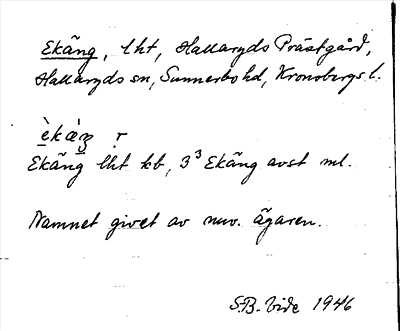 Ekäng, lht, Hallaryds Prästgård,
Hallaryds sn, Sunnerbo hd, Kronobergs l.
Ekäng lht kb, 3³ Ekäng avst ml.
Namnet givet av nuv. ägaren.
S.B. Vide 1946